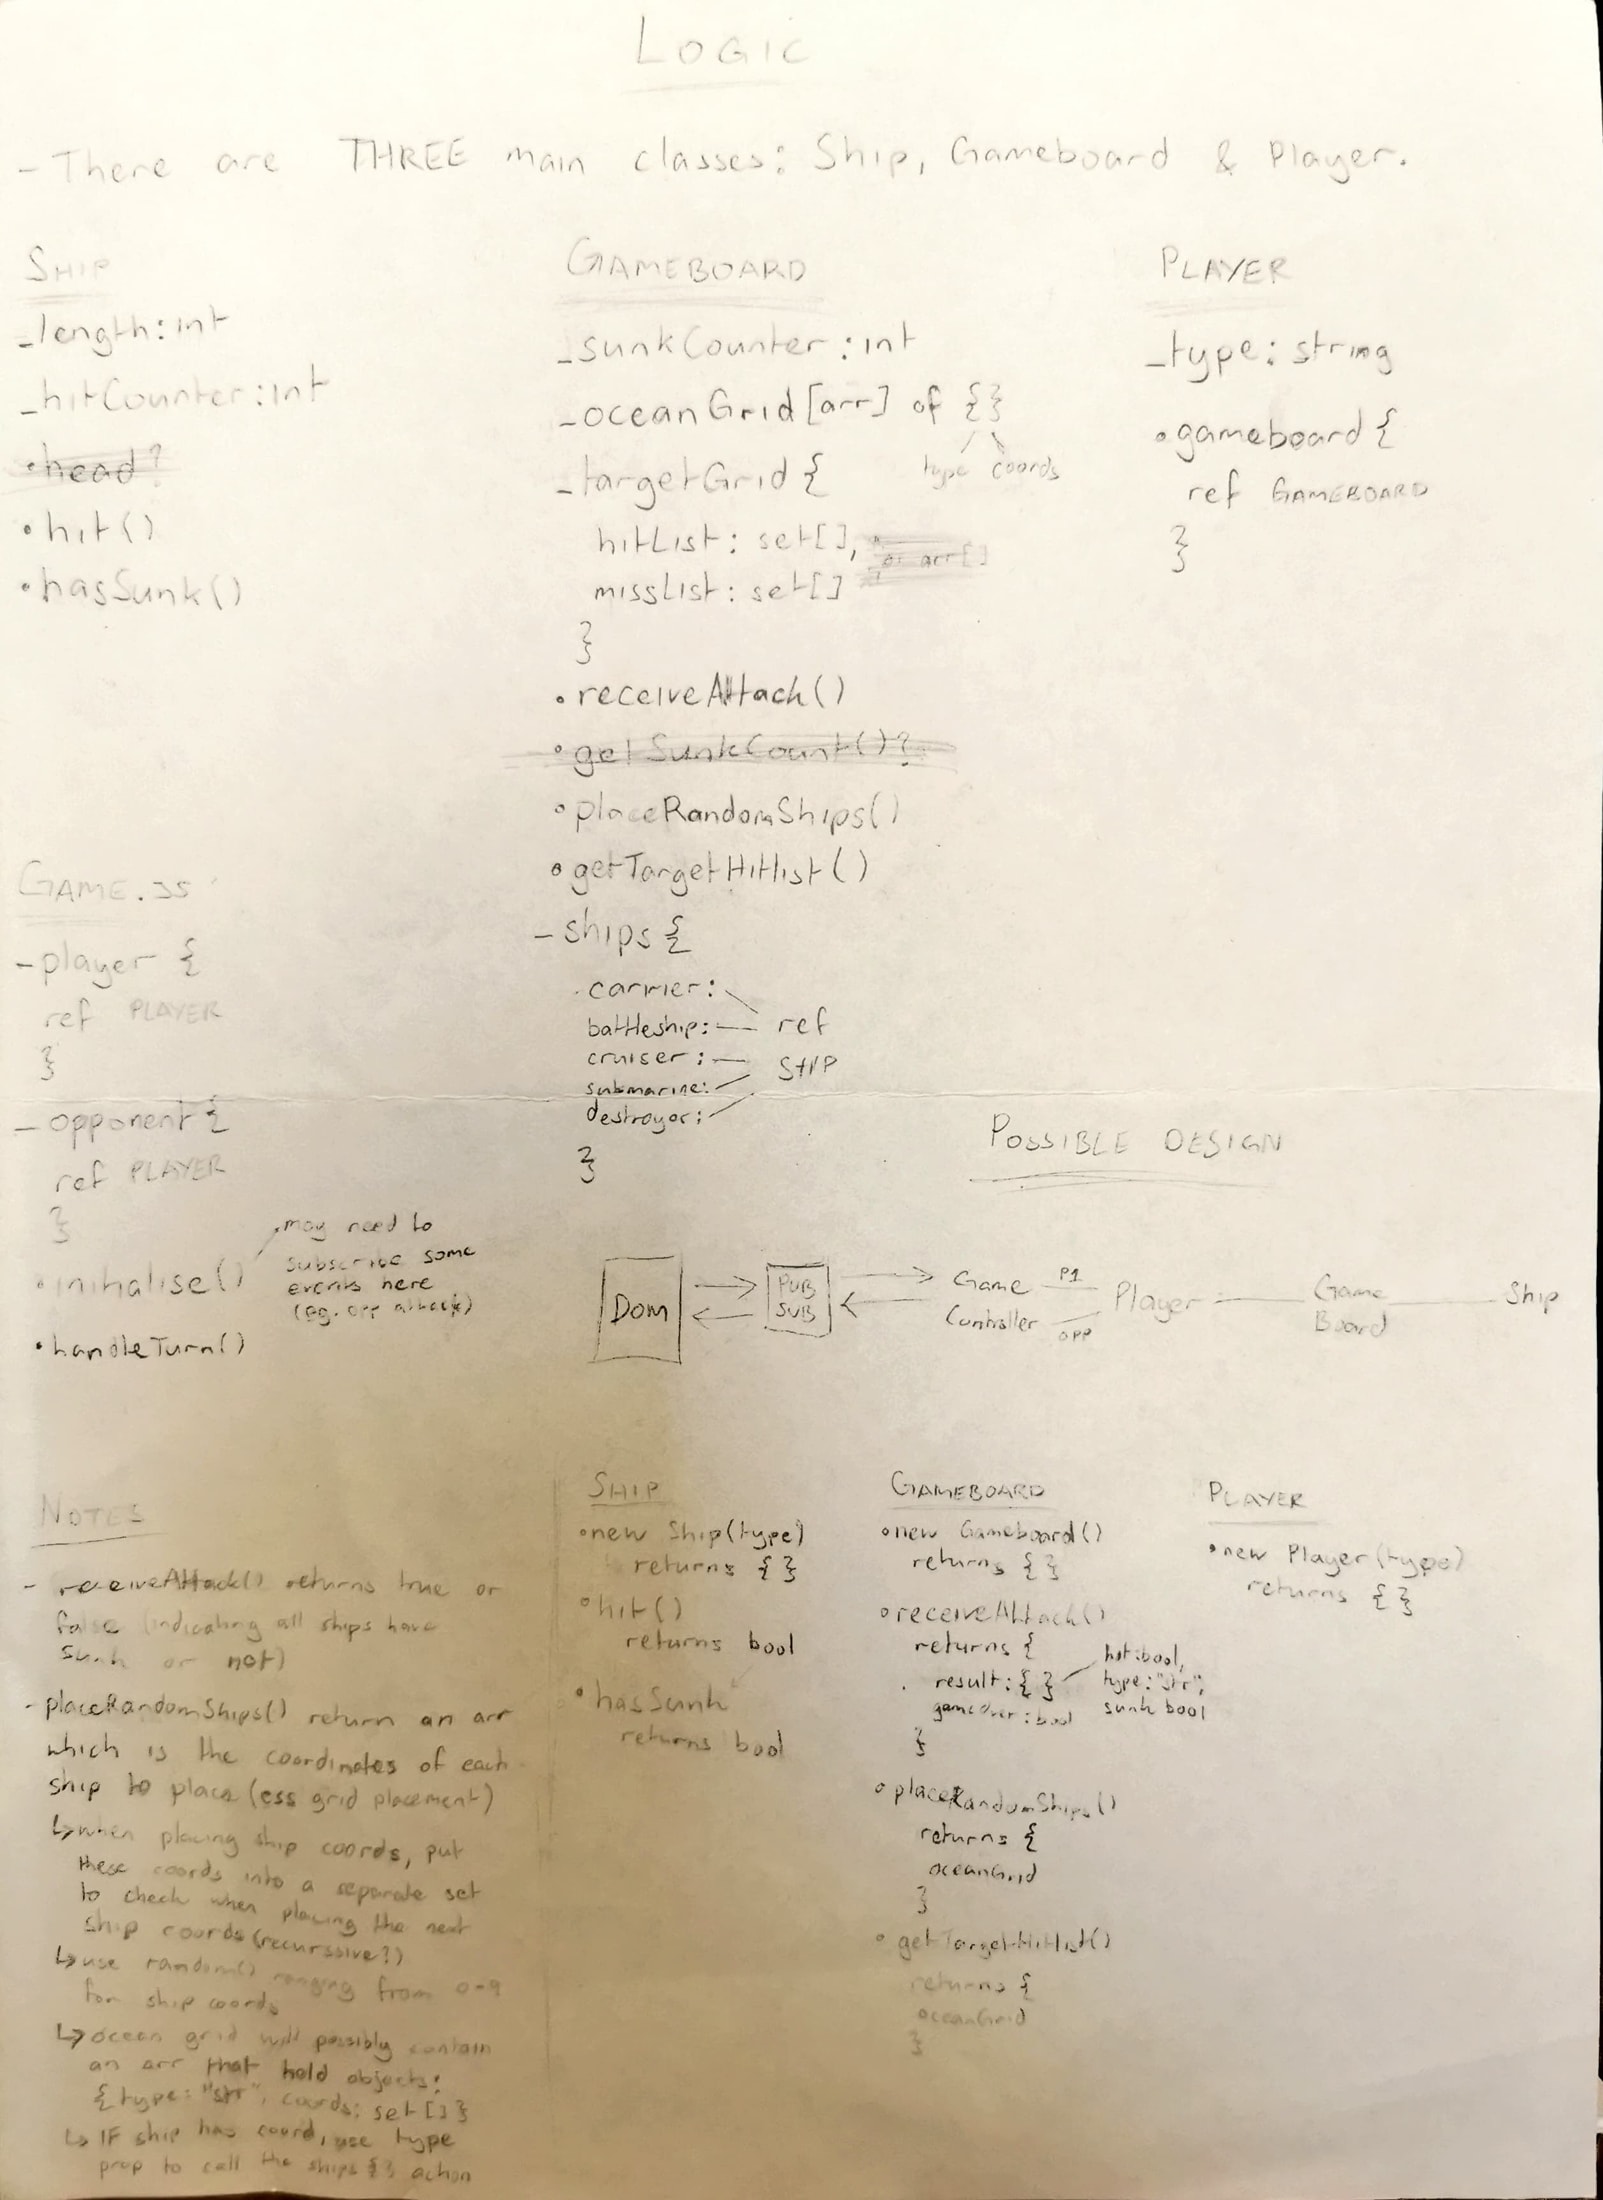 LOGIC
- There are THREE main classes: Ship, Gameboard & Player.
SHIP
_length: int
_hitCounter: int
•head?
•hit()
•hasSunk()
GAMEBOARD
_sunkCounter: int
_oceanGrid[arr] of {}
type coords
_targetGrid {
hitList: set[],
or arr[]
missList: set[]
}
•receiveAttack()
•getSunkCount()?
•placeRandomShips()
•getTargetHitlist()
- ships {
carrier:
battleship:
cruiser:
submarine:
destroyor:
ref
SHIP
}
PLAYER
_type: string
•gameboard {
ref GAMEBOARD
}
GAME.JS
- player {
ref PLAYER
}
- opponent {
ref PLAYER
}
•initialise()
may need to
subscribe some
events here
(eg. opp attack)
•handleTurn()
POSSIBLE DESIGN
DOM
PUB
SUB
Game
Controller
P1
OPP
Player
Game
Board
Ship
NOTES
- receiveAttack() returns true or
false (indicating all ships have
sunk or not)
- placeRandomShips() return an arr
which is the coordinates of each
ship to place (css grid placement)
↳ when placing ship coords, put
these coords into a separate set
to check when placing the next
ship coords (recurssive?)
↳ use random() ranging from 0-9
for ship coords
↳ ocean grid will possibly contain
an arr that hold objects:
{type: "str", coords: set[]}
↳ IF ship has coord, use type
prop to call the ships {} action
SHIP
•new Ship(type)
returns {}
•hit()
returns bool
•hasSunk
returns bool
GAMEBOARD
•new Gameboard()
returns {}
•receiveAttack()
returns {
result: {}
hit: bool,
type: "str",
sunk bool
gameover: bool
}
•placeRandomShips()
returns {
oceanGrid
}
•getTargetHitlist()
returns {
oceanGrid
}
PLAYER
•new Player(type)
returns {}